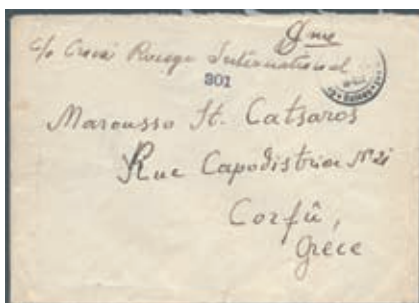 Mme
c/o Croix Rouge International
301
Marousso St. Catsaros
Rue Capodistria Nº 21
Corfû,
Grèce